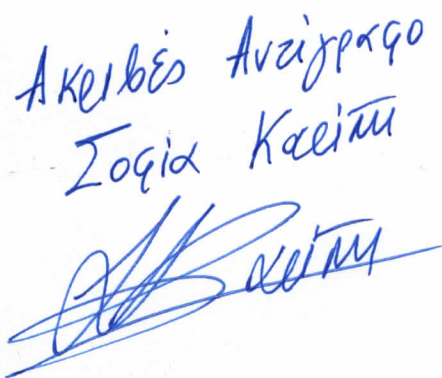 Ακριβές Αντίγραφο
Σοφία Καρίπη